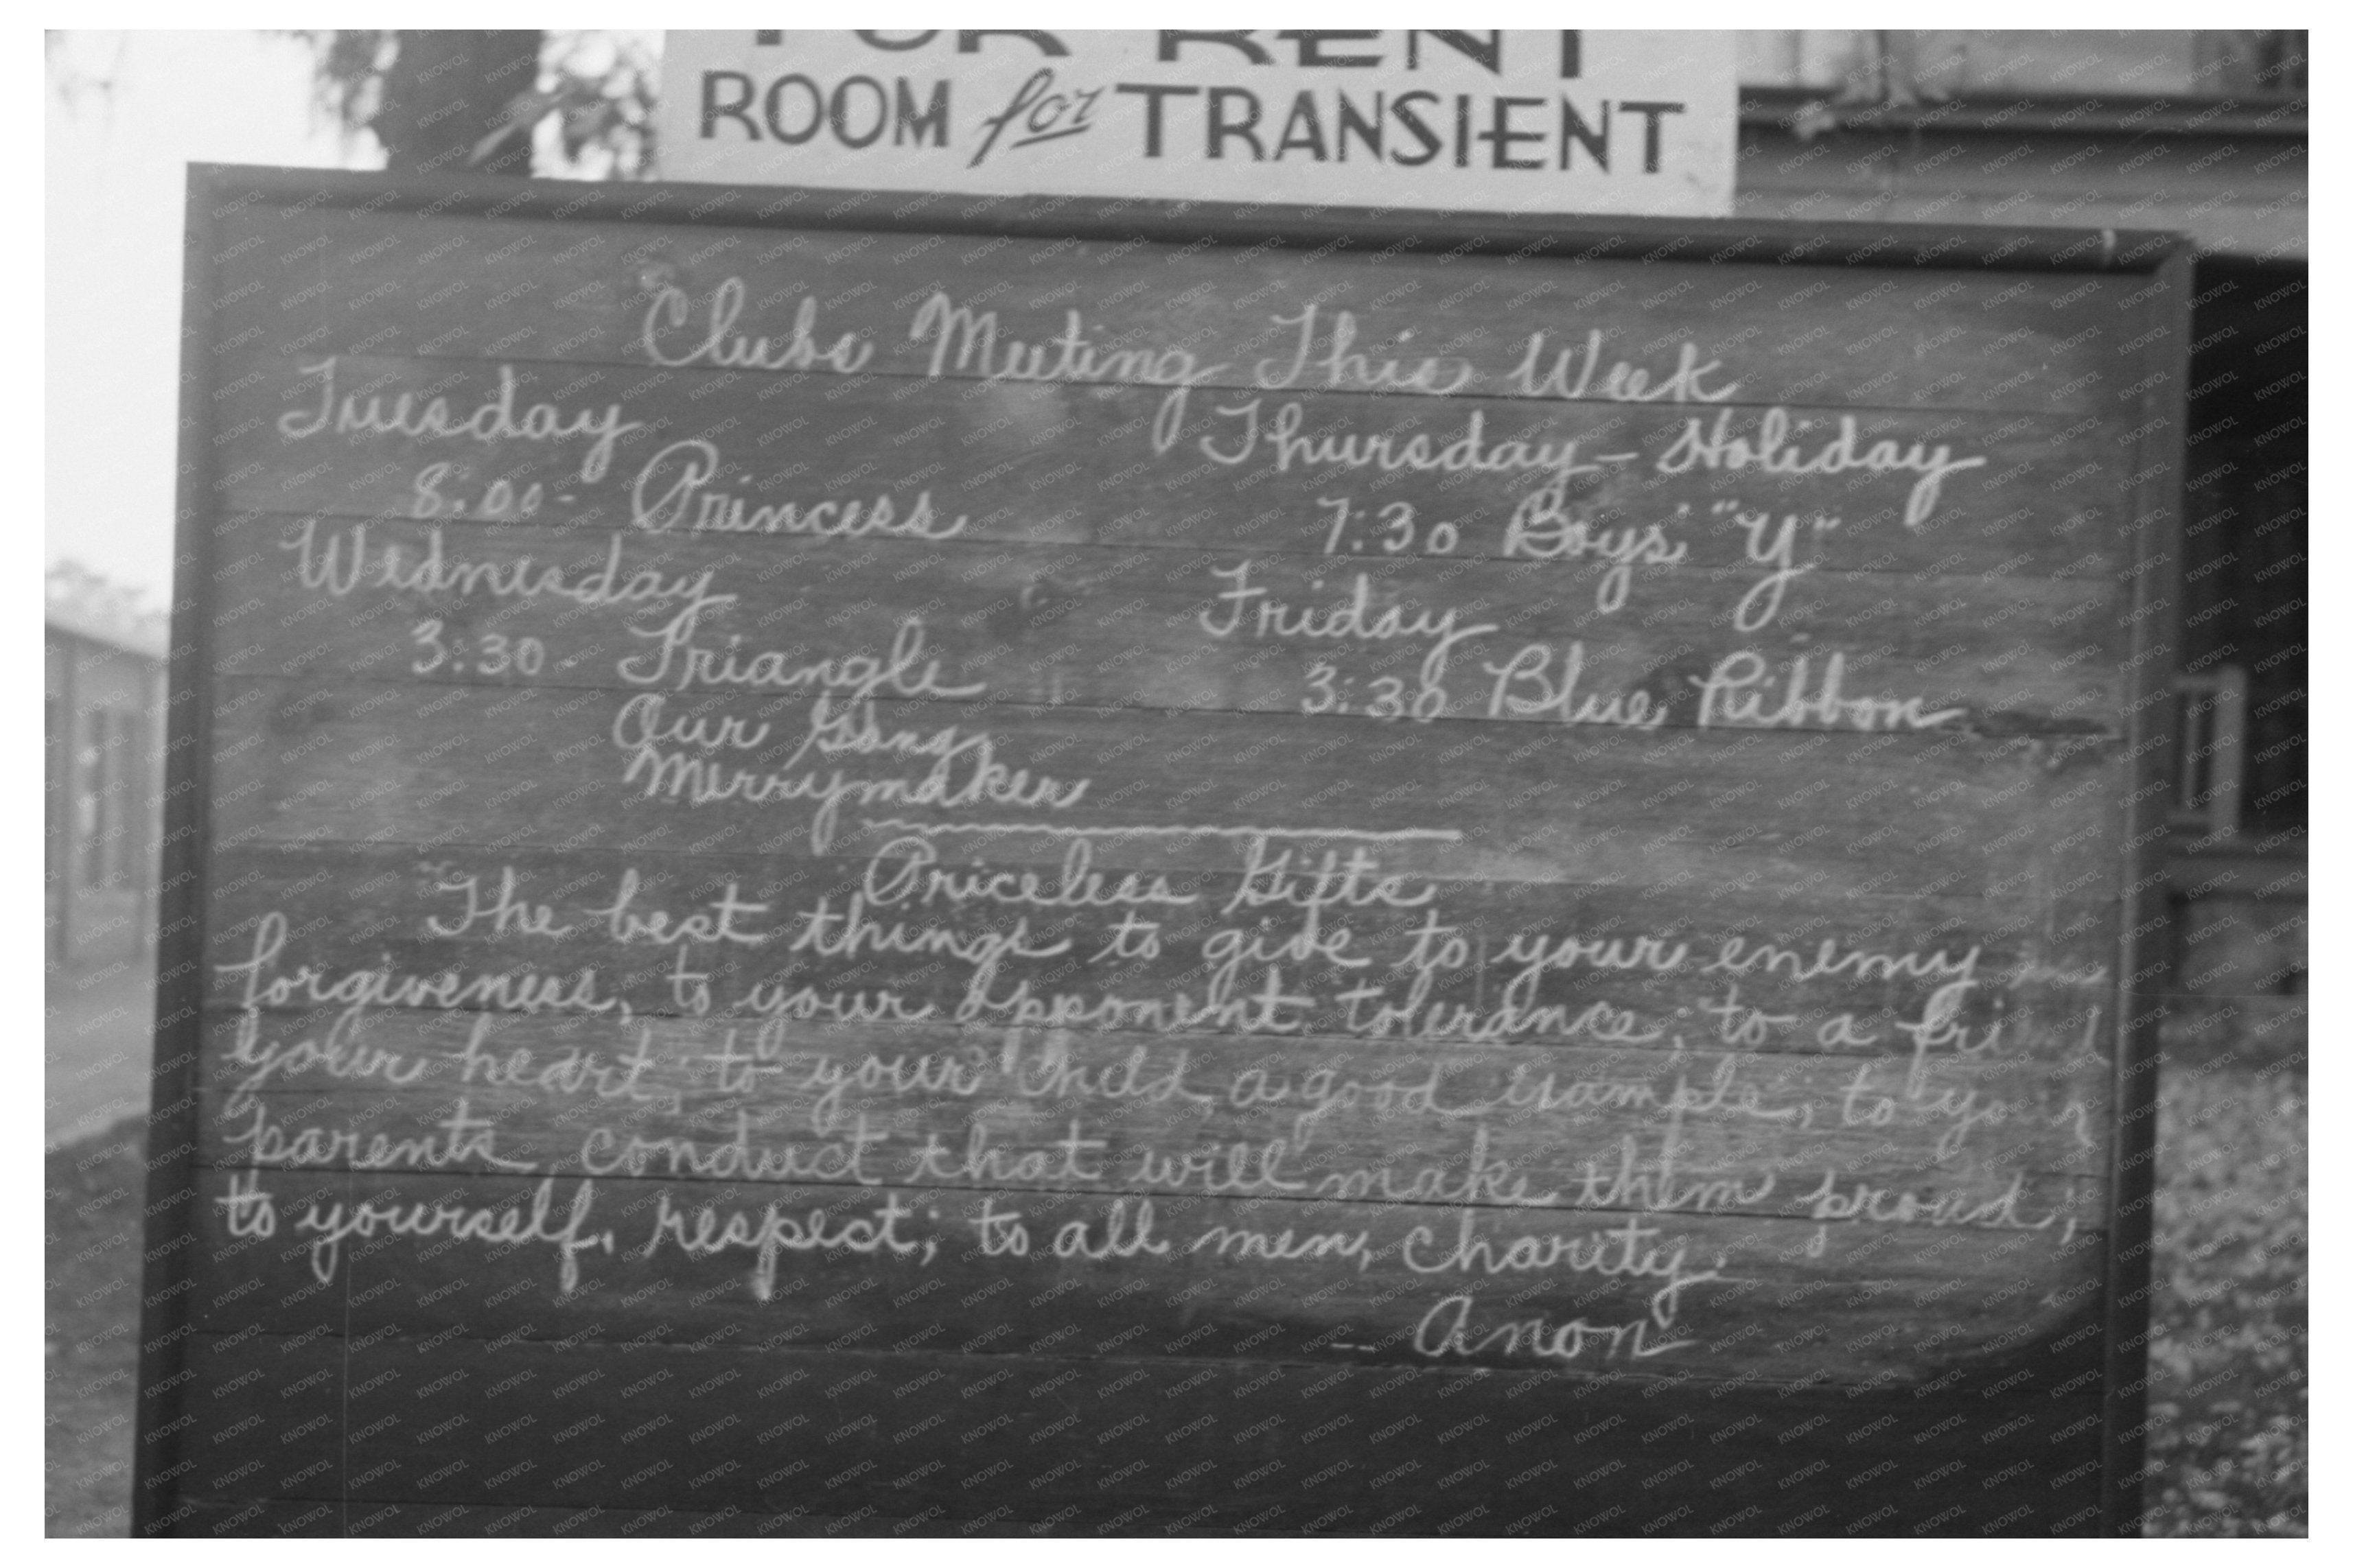 FOR RENT
ROOM for TRANSIENT
Clubs Meeting This Week
Tuesday
8:00 - Princess
Wednesday
3:30 - Triangle
Our Gang
Merrymaker
Thursday - Holiday
7:30 Boys' "Y"
Friday
3:30 Blue Ribbon
Priceless Gifts
The best things to give to your enemy
forgiveness, to your opponent, tolerance; to a friend
your heart; to your child, a good example; to your
parents, conduct that will make them proud;
to yourself, respect; to all men, charity.
-- Anon
KNOWOL